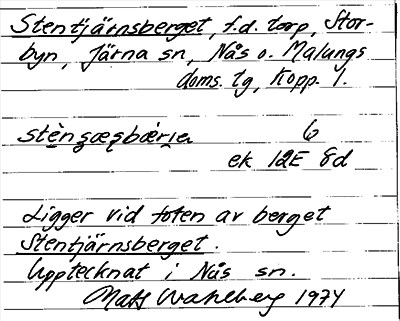 Stentjärnsberget, f.d. torp, Stor-
byn, Järna sn, Nås o. Malungs
doms. tg, Kopp. l.
6
ek 12E 8d
Ligger vid foten av berget
Stentjärnsberget.
Upptecknat i Nås sn.
Mats Wahlberg 1974